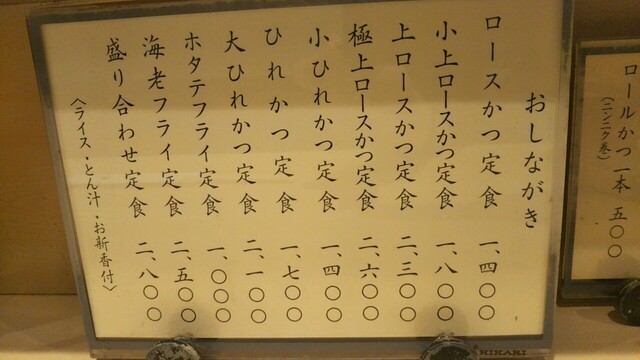 おしながき
ロースかつ定食 一、四〇〇
小上ロースかつ定食 一、八〇〇
上ロースかつ定食 二、三〇〇
極上ロースかつ定食 二、六〇〇
小ひれかつ定食 一、四〇〇
ひれかつ定食 一、七〇〇
大ひれかつ定食 二、一〇〇
ホタテフライ定食 一、〇〇〇
海老フライ定食 二、五〇〇
盛り合わせ定食 二、八〇〇
〈ライス・とん汁・お新香付〉
ロールかつ一本 五〇〇
(ニンニク巻)
HIKARI